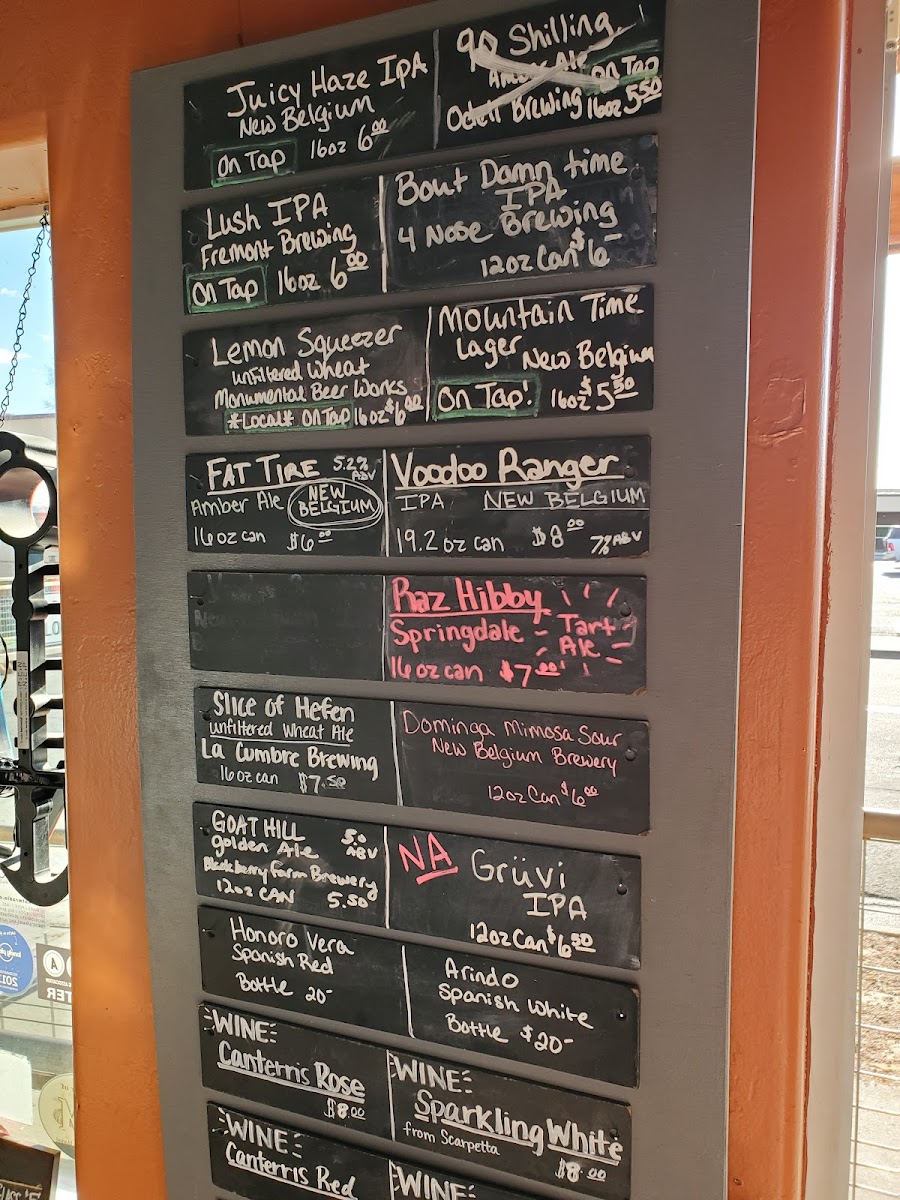 Juicy Haze IPA
New Belgium
On Tap 16oz 6.00
90 Shilling
Amber Ale On Tap
Odell Brewing 16oz 5.50
Lush IPA
Fremont Brewing
On Tap 16oz 6.00
Bout Damn time
IPA
4 Nose Brewing
12oz Can $6-
Lemon Squeezer
unfiltered wheat
Monumental Beer Works
*Local* On Tap 16oz $6.00
Mountain Time
Lager New Belgium
On Tap! 16oz $5.50
FAT TIRE 5.2% ABV
Amber Ale NEW BELGIUM
16oz can $6.00
Voodoo Ranger
IPA NEW BELGIUM
19.2 oz can $8.00 7% ABV
Raz Hibby
Springdale - Tart Ale
16oz can $7.00
Slice of Hefen
unfiltered Wheat Ale
La Cumbre Brewing
16oz can $7.50
Dominga Mimosa Sour
New Belgium Brewery
12oz Can $6.00
GOAT HILL 5.0 ABV
golden Ale
Blackberry Farm Brewery
12oz CAN 5.50
NA Grüvi
IPA
12oz Can $6.50
Honoro Vera
Spanish Red
Bottle 20-
Arindo
Spanish White
Bottle $20-
WINE
Canterris Rose
$8.00
WINE
Sparkling White
from Scarpetta
$8.00
WINE
Canterris Red
WINE